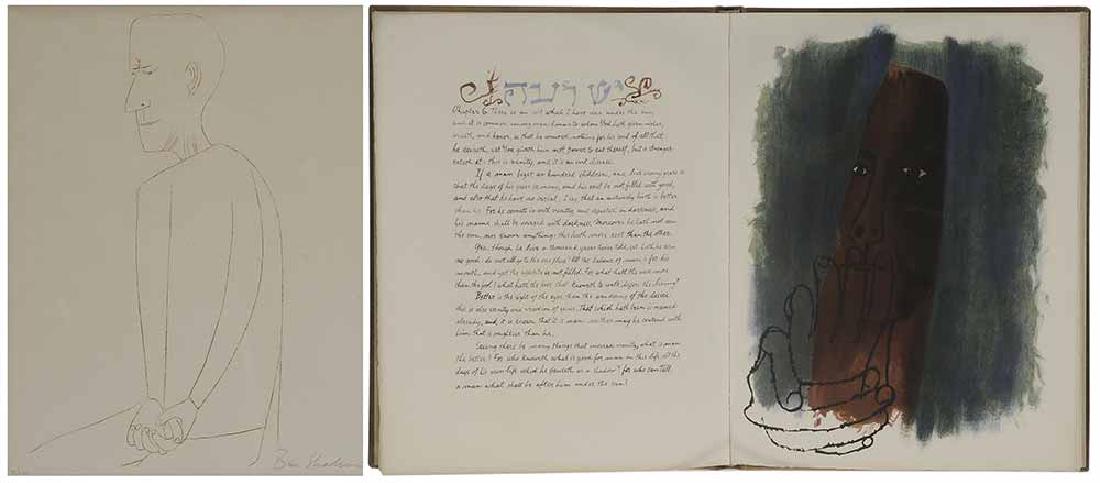 Ben Shahn
יש רעה
Chapter 6. There is an evil which I have seen under the sun,
and it is common among men: a man to whom God hath given riches,
wealth, and honor, so that he wanteth nothing for his soul of all that
he desireth, yet God giveth him not power to eat thereof, but a stranger
eateth it: this is vanity, and it is an evil disease.
If a man beget an hundred children, and live many years so
that the days of his years be many, and his soul be not filled with good,
and also that he have no burial: I say, that an untimely birth is better
than he. For he cometh in with vanity, and departeth in darkness, and
his name shall be covered with darkness. Moreover he hath not seen
the sun, nor known anything: this hath more rest than the other.
Yea, though he live a thousand years twice told, yet hath he seen
no good: do not all go to the one place? All the labour of man is for his
mouth, and yet the appetite is not filled. For what hath the wise more
than the fool? what hath the poor that knoweth to walk before the living?
Better is the sight of the eyes than the wandering of the desire:
this is also vanity and vexation of spirit. That which hath been is named
already, and it is known that it is man: neither may he contend with
him that is mightier than he.
Seeing there be many things that increase vanity, what is man
the better? For who knoweth what is good for man in this life, all the
days of his vain life which he spendeth as a shadow? for who can tell
a man what shall be after him under the sun?